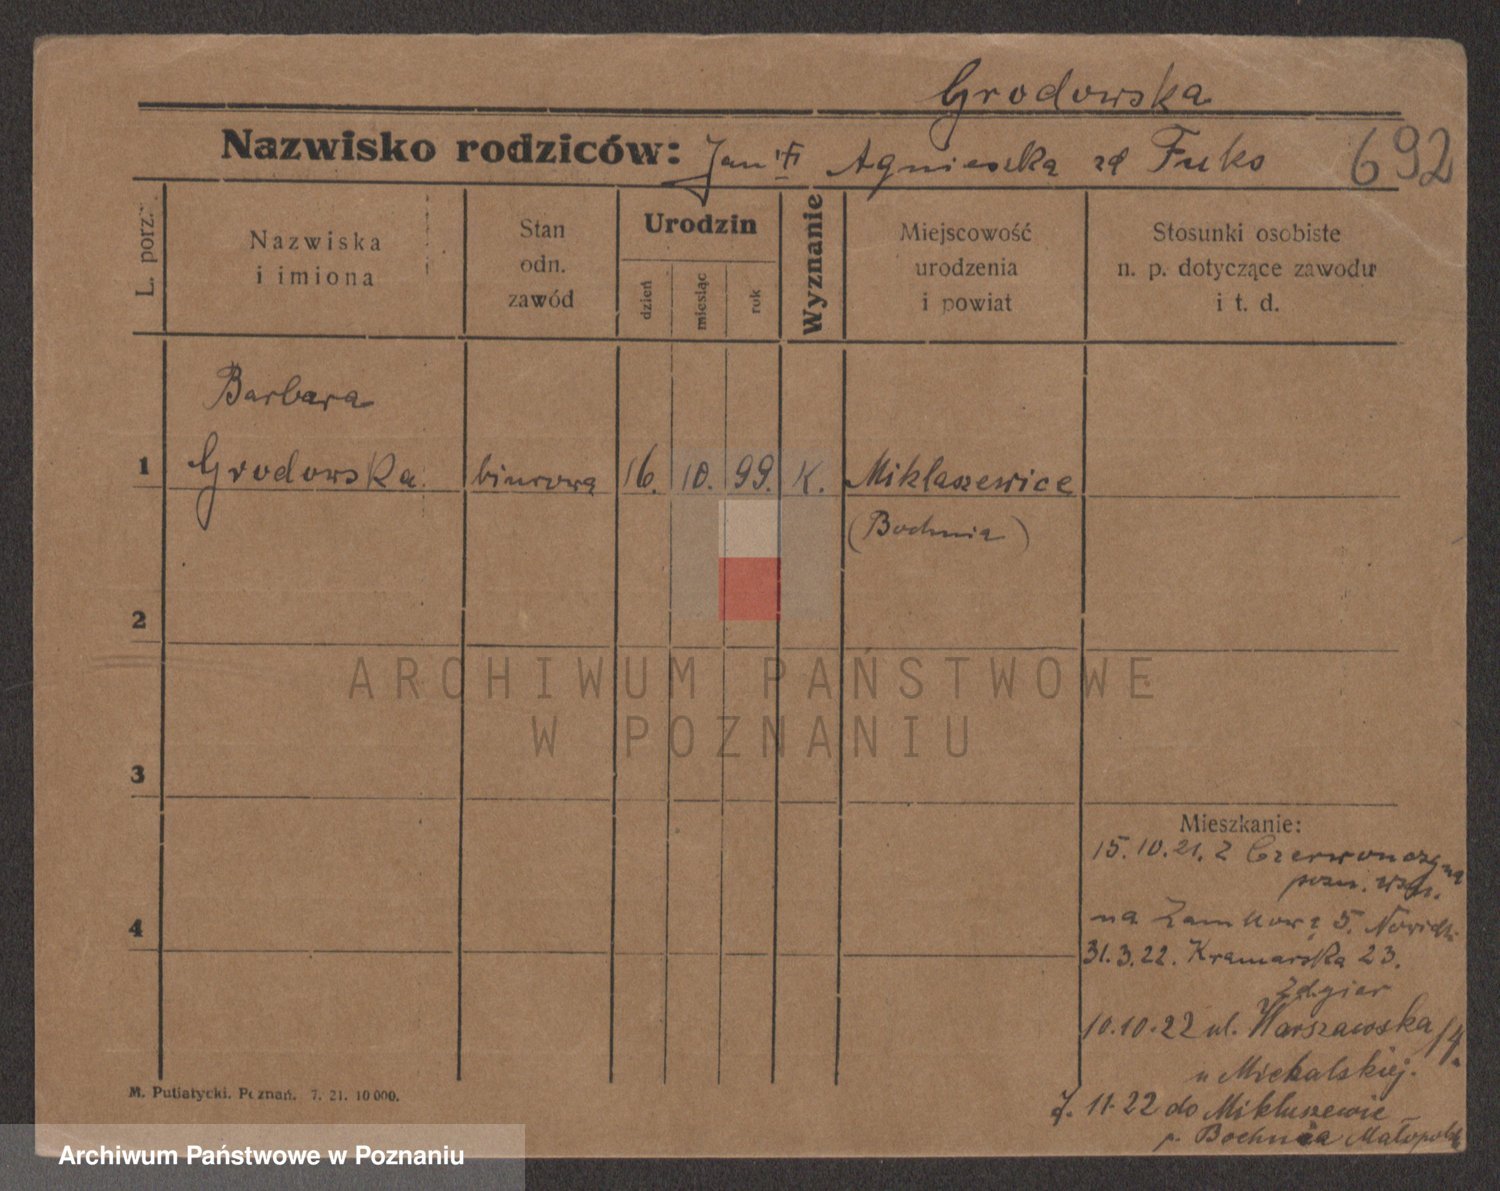 Grodowska
Nazwisko rodziców: Jan i Agnieszka zd Fuks
692
L. porz.
Nazwiska
i imiona
Stan
odn.
zawód
Urodzin
dzień
miesiąc
rok
Wyznanie
Miejscowość
urodzenia
i powiat
Stosunki osobiste
n. p. dotyczące zawodu
i t. d.
Barbara
1 Grodowska biurowa 16. 10. 99. K. Miklaszewice
(Bochnia)
2
ARCHIWUM PAŃSTWOWE
W POZNANIU
3
Mieszkanie:
15.10.21. z
4
na Zamkową 5.
31.3.22. Kramarska 23.
10.10.22 ul. Warszawska
u Michalskiej.
11.22 do Mikluszewic
p. Bochnia Małopols
M. Putiatycki. Poznań. 7. 21. 10 000.
Archiwum Państwowe w Poznaniu